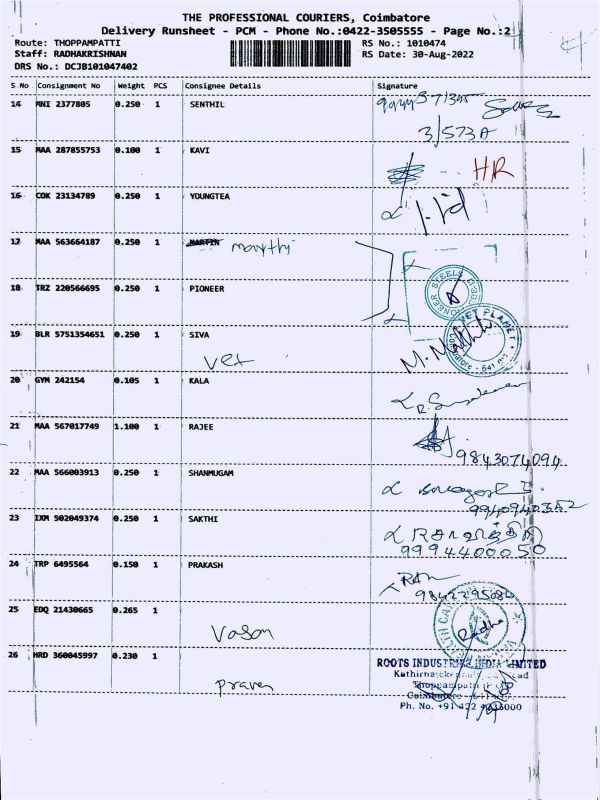 THE PROFESSIONAL COURIERS, Coimbatore
Delivery Runsheet - PCM - Phone No.:0422-3505555 - Page No.:2
Route: THOPPAMPATTI RS No.: 1010474
Staff: RADHAKRISHNAN RS Date: 30-Aug-2022
DRS No.: DCJB101047402
S No Consignment No Weight PCS Consignee Details Signature
14 MNI 2377805 0.250 1 SENTHIL
3/573A
15 MAA 287855753 0.100 1 KAVI HR
16 COK 23134789 0.250 1 YOUNGTEA
17 MAA 563664187 0.250 1 MARTIN
18 TRZ 220566695 0.250 1 PIONEER
PIONEER STEELS
19 BLR 5751354651 0.250 1 SIVA
Vet
PET PLANET
20 GYM 242154 0.105 1 KALA
21 MAA 567017749 1.100 1 RAJEE
9843074094
22 MAA 566003913 0.250 1 SHANMUGAM
9940940352
23 IXM 502049374 0.250 1 SAKTHI
9994400050
24 TRP 6495564 0.150 1 PRAKASH
9842295080
25 EDQ 21430665 0.265 1
Vasan
Radha
26 HRD 360045997 0.230 1
Praven
ROOTS INDUSTRIES INDIA LIMITED
Thoppampatti
Coimbatore
Ph. No. +91 422